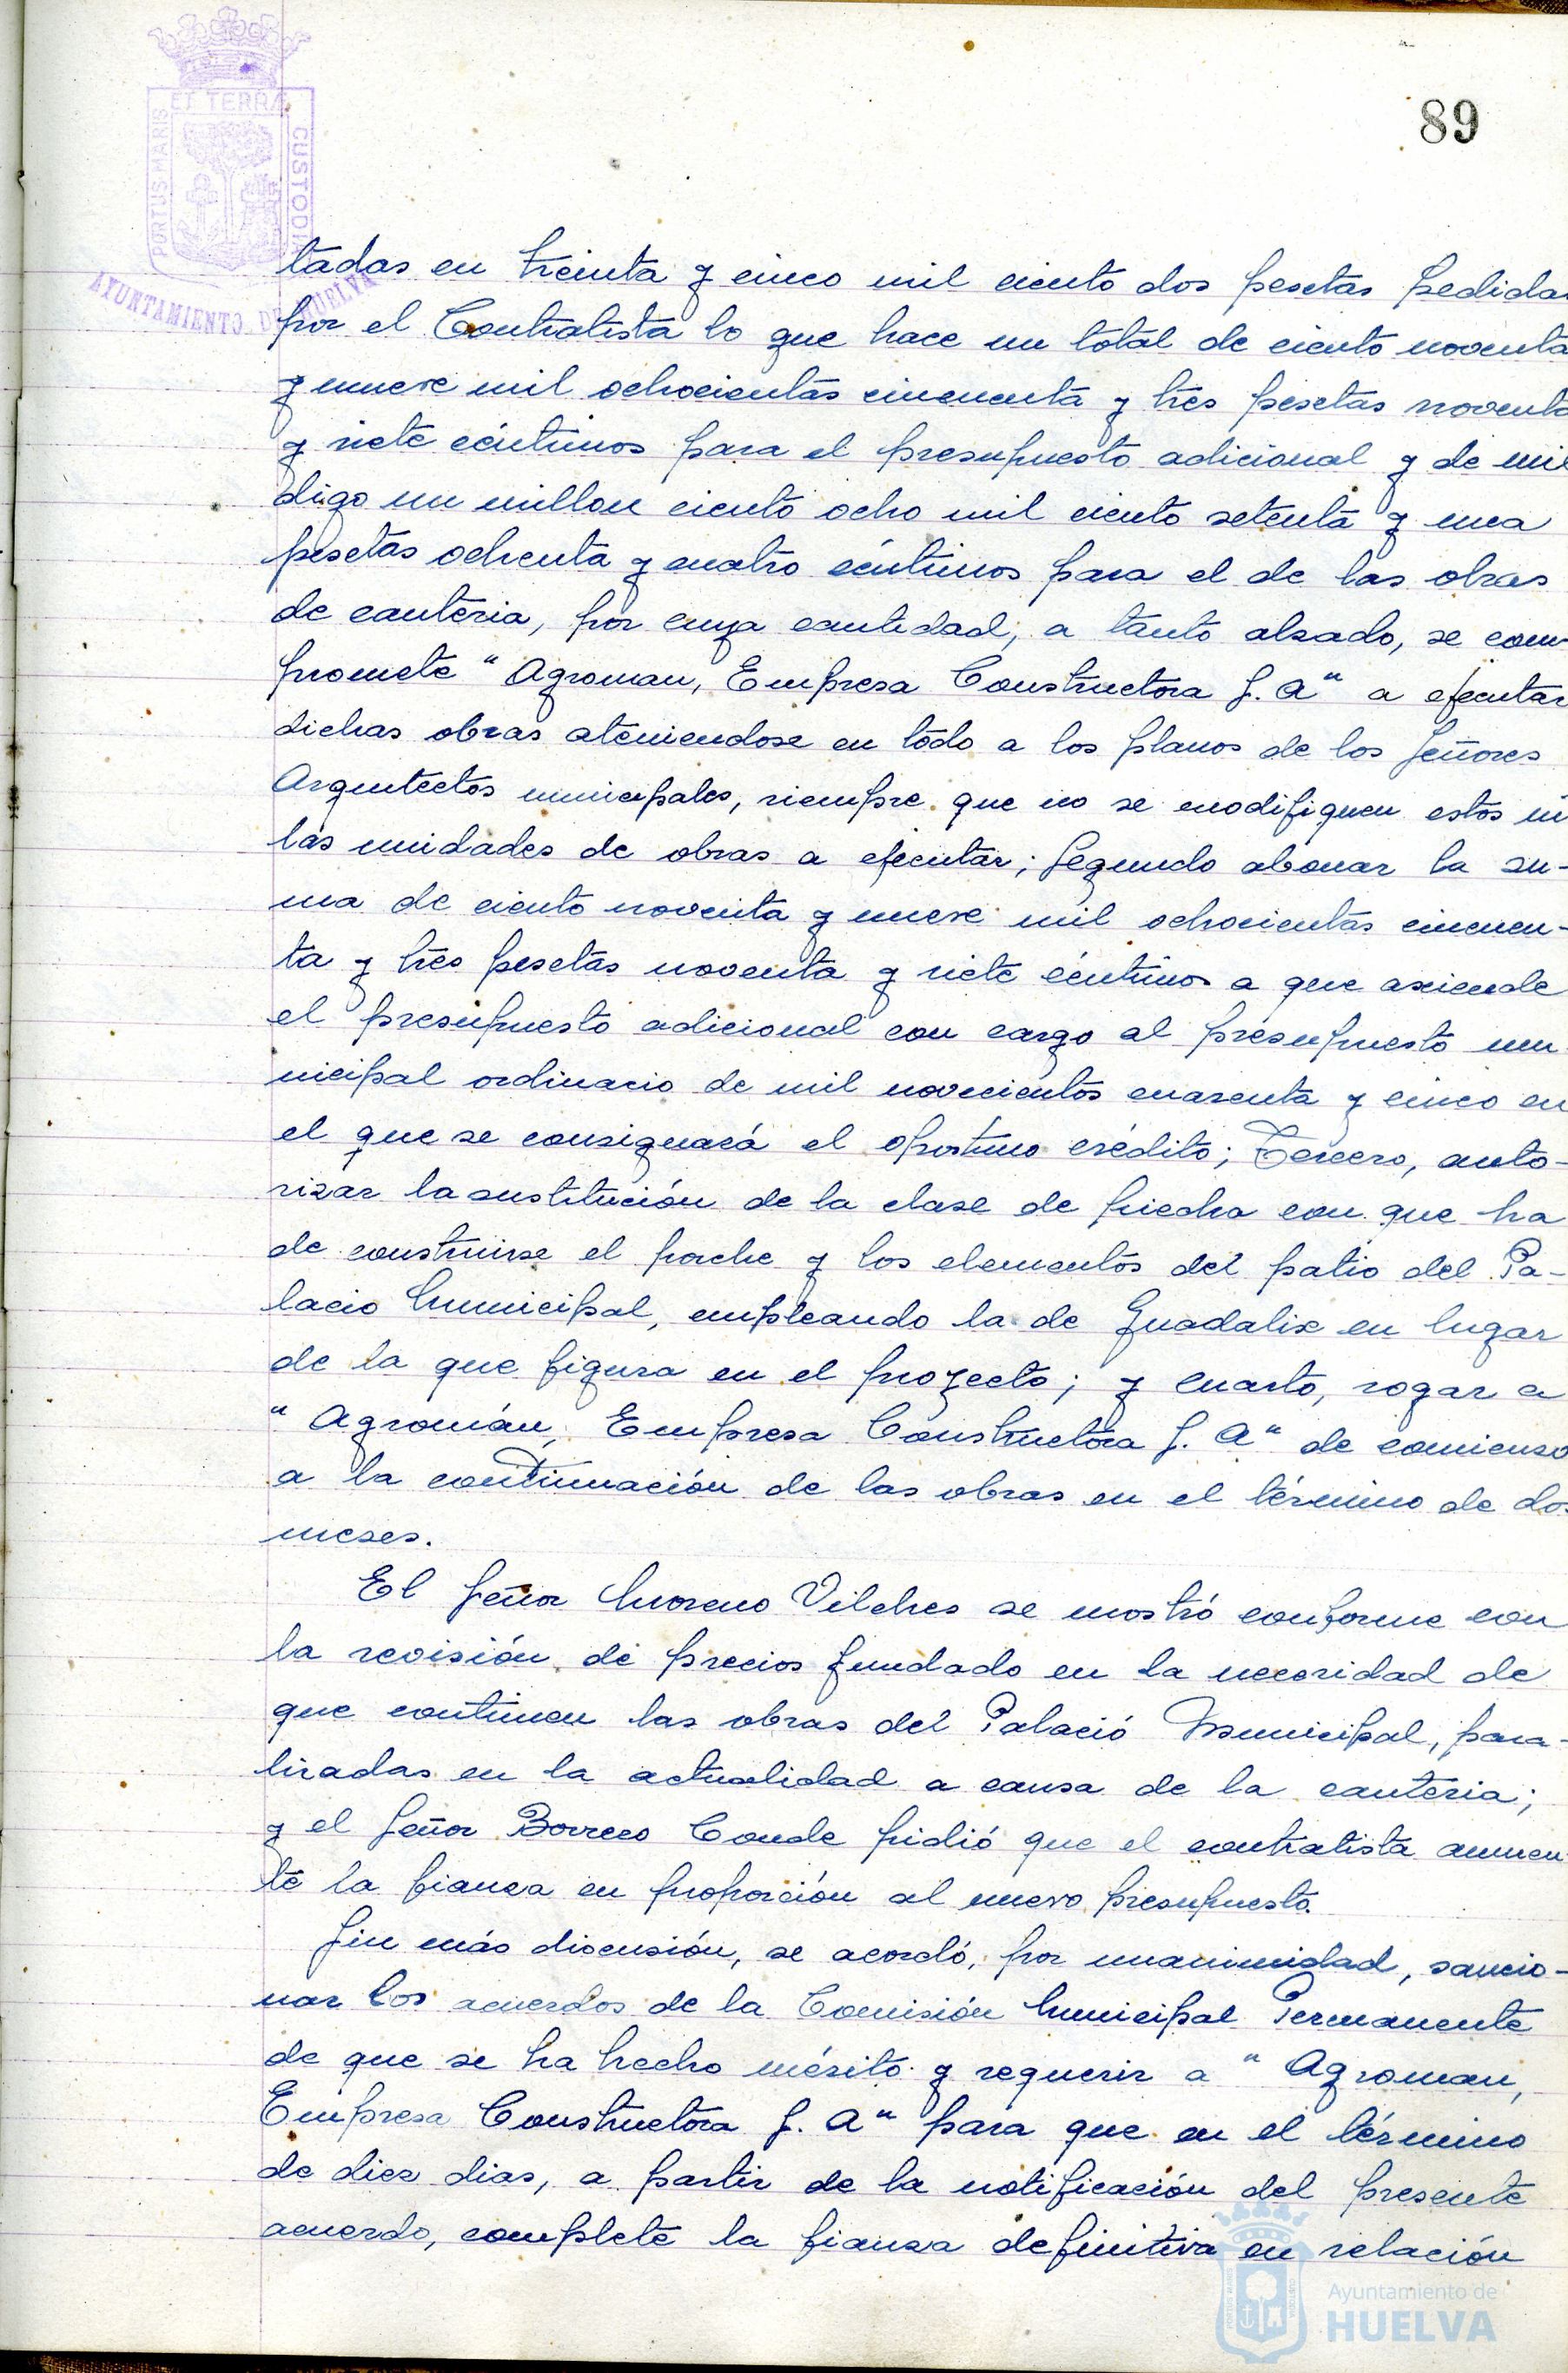 89
PORTUS MARIS ET TERRÆ CUSTODIA
AYUNTAMIENTO DE HUELVA
tadas en treinta y cinco mil ciento dos pesetas pedidas
por el Contratista lo que hace un total de ciento noventa
y nueve mil ochocientas cincuenta y tres pesetas noventa
y siete céntimos para el presupuesto adicional y de mil
digo un millon ciento ocho mil ciento setenta y una
pesetas ochenta y cuatro céntimos para el de las obras
de cantería, por cuya cantidad, a tanto alzado, se com-
promete "Agroman, Empresa Constructora S. A" a ejecutar
dichas obras ateniendose en todo a los planos de los Señores
Arquitectos municipales, siempre que no se modifiquen estos ni
las unidades de obras a ejecutar; Segundo abonar la su-
ma de ciento noventa y nueve mil ochocientas cincuen-
ta y tres pesetas noventa y siete céntimos a que asciende
el presupuesto adicional con cargo al presupuesto mu-
nicipal ordinario de mil novecientos cuarenta y cinco en
el que se consignará el oportuno crédito; Tercero, auto-
rizar la sustitución de la clase de piedra con que ha
de construirse el porche y los elementos del patio del Pa-
lacio Municipal, empleando la de Guadalix en lugar
de la que figura en el proyecto; y cuarto, rogar a
"Agromán, Empresa Constructora S. A" de comienzo
a la continuación de las obras en el término de dos
meses.
El Señor Moreno Vilches se mostró conforme con
la revisión de precios fundado en la necesidad de
que continuen las obras del Palació Municipal, para-
lizadas en la actualidad a causa de la cantería;
y el Señor Borrero Conde pidió que el contratista aumen
te la fianza en proporción al nuevo presupuesto.
Sin más discusión, se acordó, por unanimidad, sancio-
nar los acuerdos de la Comisión Municipal Permanente
de que se ha hecho mérito y requerir a "Agroman,
Empresa Constructora S. A" para que en el término
de diez dias, a partir de la notificación del presente
acuerdo, complete la fianza definitiva en relación
Ayuntamiento de
HUELVA